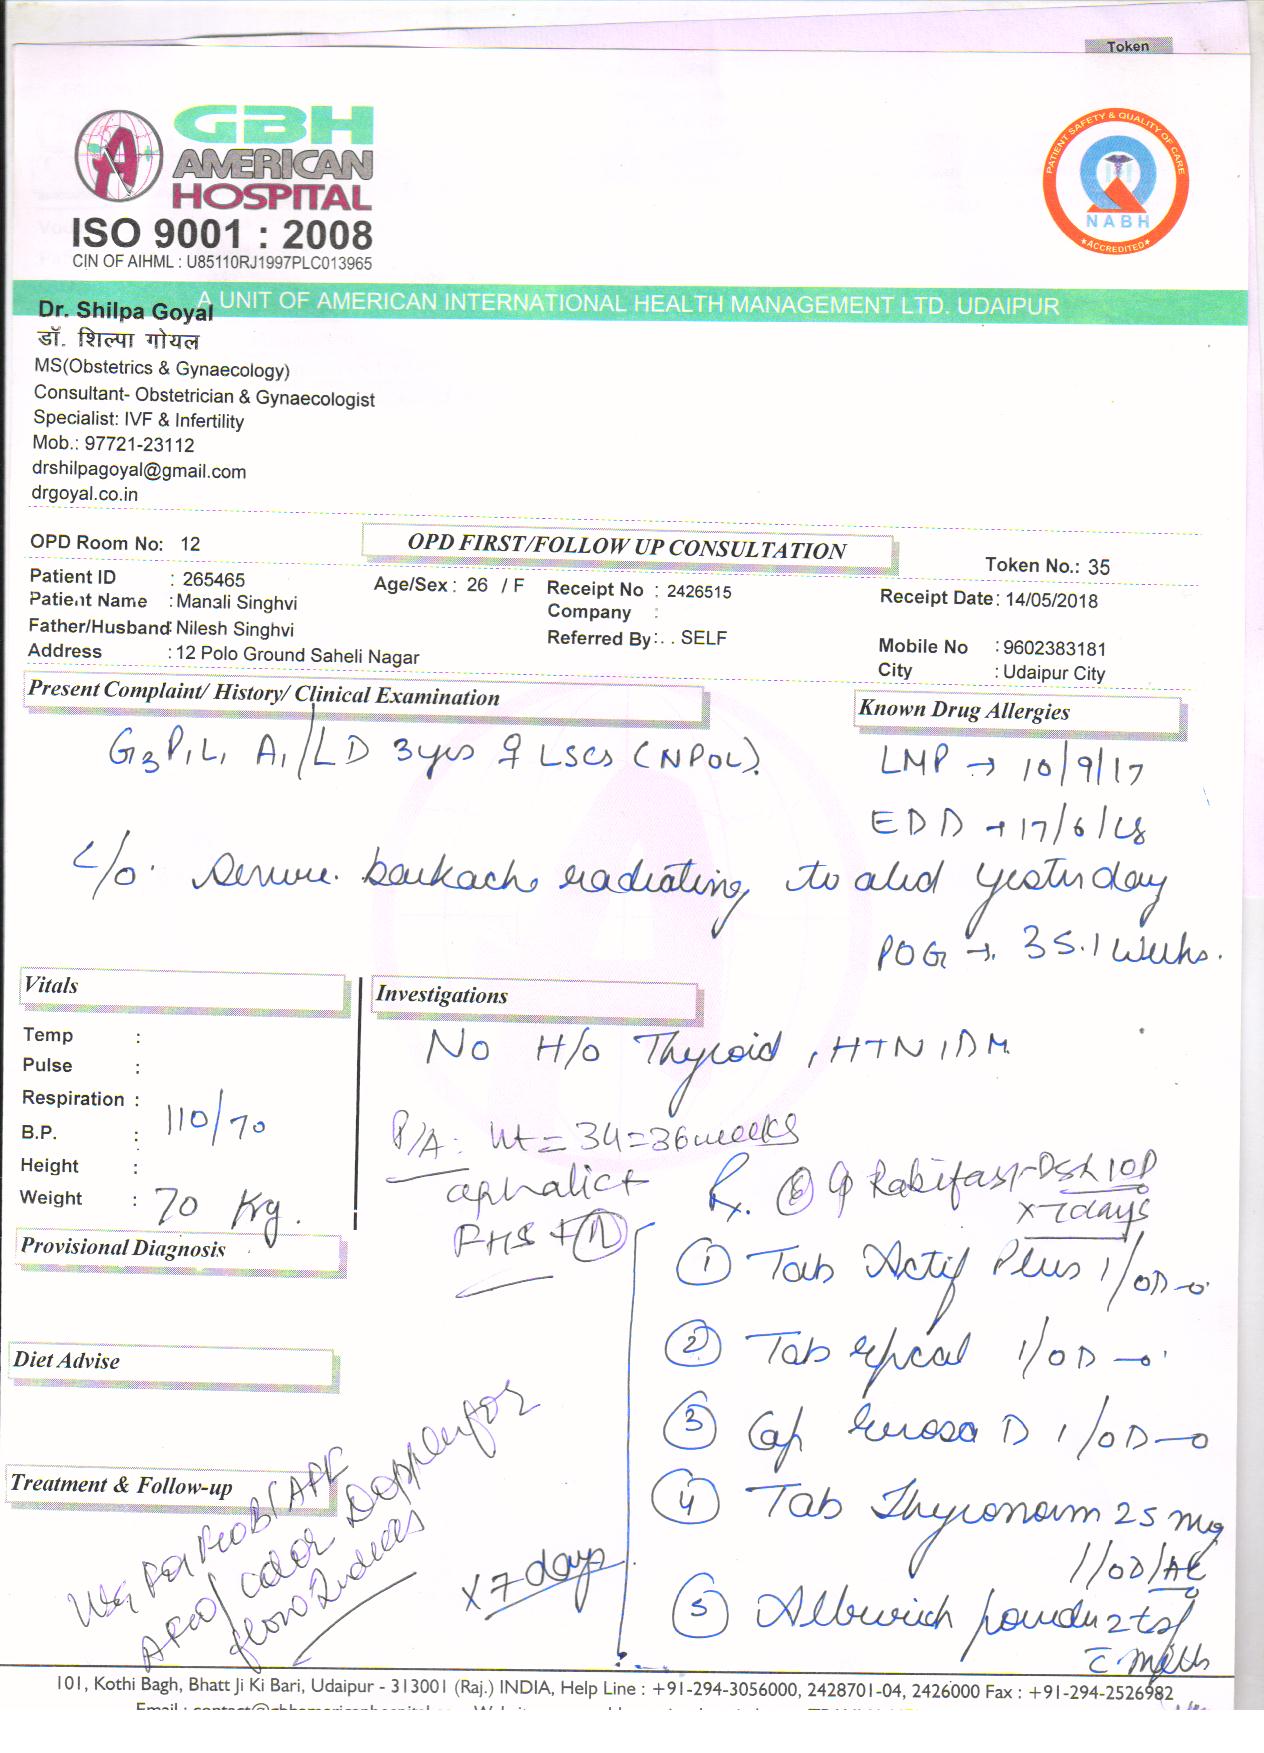 Token
GBH
AMERICAN
HOSPITAL
ISO 9001 : 2008
CIN OF AIHML : U85110RJ1997PLC013965
PATIENT SAFETY & QUALITY OF CARE
NABH
ACCREDITED
A UNIT OF AMERICAN INTERNATIONAL HEALTH MANAGEMENT LTD. UDAIPUR
Dr. Shilpa Goyal
डॉ. शिल्पा गोयल
MS(Obstetrics & Gynaecology)
Consultant- Obstetrician & Gynaecologist
Specialist: IVF & Infertility
Mob.: 97721-23112
drshilpagoyal@gmail.com
drgoyal.co.in
OPD Room No: 12 OPD FIRST/FOLLOW UP CONSULTATION Token No.: 35
Patient ID : 265465 Age/Sex : 26 / F Receipt No : 2426515 Receipt Date: 14/05/2018
Patient Name : Manali Singhvi Company :
Father/Husband: Nilesh Singhvi Referred By: . . SELF Mobile No : 9602383181
Address : 12 Polo Ground Saheli Nagar City : Udaipur City
Present Complaint/ History/ Clinical Examination Known Drug Allergies
G3P1L1 A1/LD 3yrs LSCS (NPOL). LMP → 10/9/17
EDD → 17/6/18
C/o. severe backache radiating to abd yesterday
POG → 35.1 Weeks.
Vitals Investigations
Temp : No H/o Thyroid, HTN, DM
Pulse :
Respiration :
B.P. : 110/70 P/A: Ut = 34=36 weeks
Height : cephalic
Weight : 70 Kg. FHS + (N)
Rx. (6) Cp Rabifast-DSR 1OD
x 7 days
Provisional Diagnosis
(1) Tab Actif Plus 1/OD
Diet Advise
(2) Tab 1/OD
(3) Cap D 1/OD
Treatment & Follow-up
(4) Tab Thyronorm 25 mg
1/OD/
(5) powder 2tsf
c milk
Color Doppler for
flow Indices
x 7 days
101, Kothi Bagh, Bhatt Ji Ki Bari, Udaipur - 313001 (Raj.) INDIA, Help Line : +91-294-3056000, 2428701-04, 2426000 Fax : +91-294-2526982